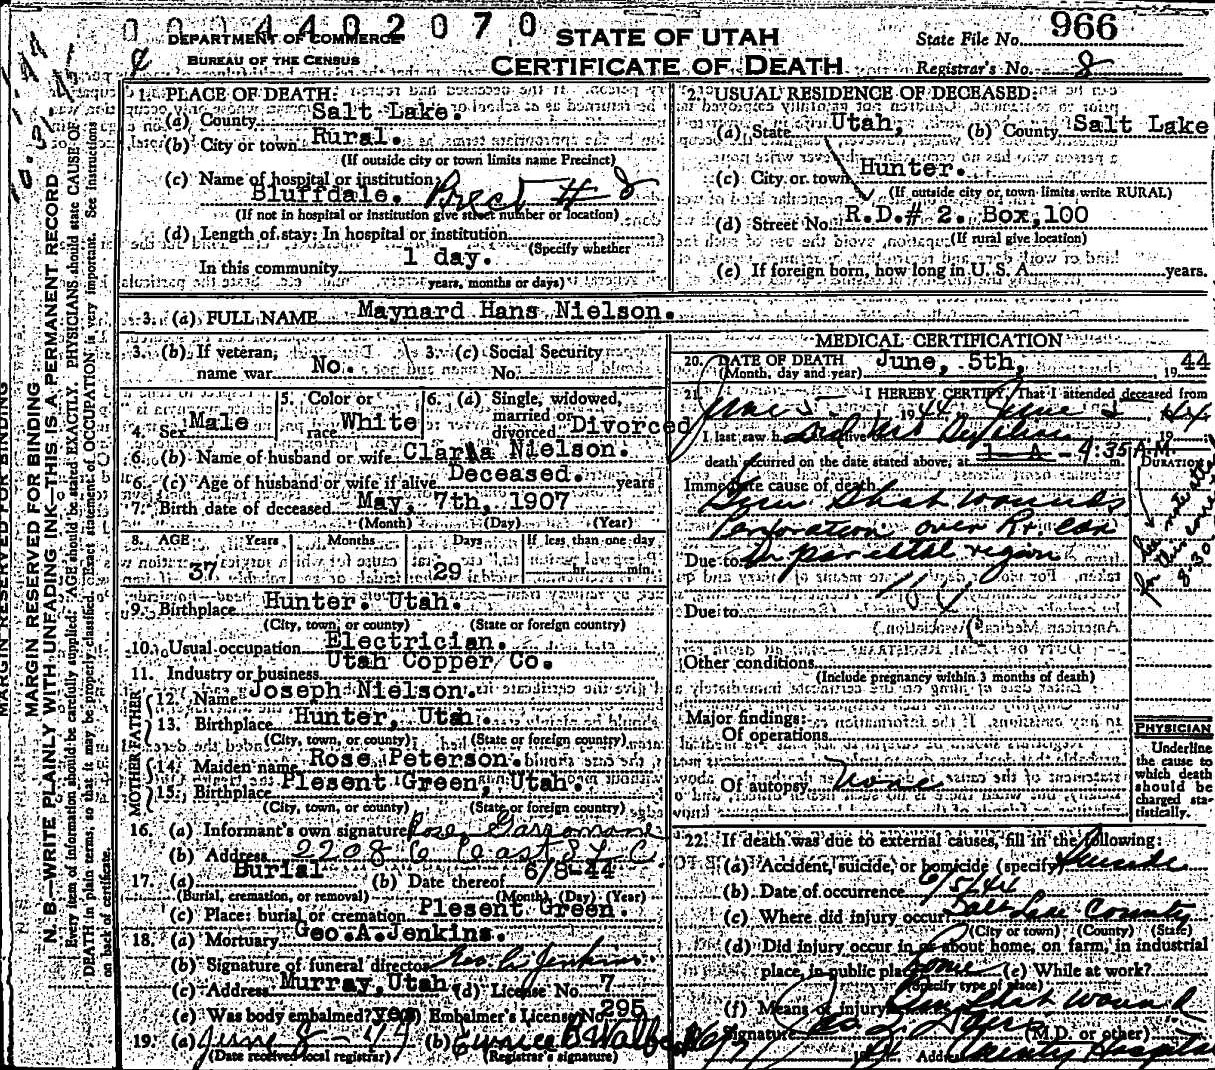 0 0 0 4 4 0 2 0 7 0
DEPARTMENT OF COMMERCE
BUREAU OF THE CENSUS
STATE OF UTAH
CERTIFICATE OF DEATH
State File No. 966
Registrar's No. 8
MARGIN RESERVED FOR BINDING
MARGIN RESERVED FOR BINDING
N. B.—WRITE PLAINLY WITH UNFADING INK—THIS IS A PERMANENT RECORD
Every item of information should be carefully supplied. AGE should be stated EXACTLY. PHYSICIANS should state CAUSE OF
DEATH in plain terms, so that it may be properly classified. Exact statement of OCCUPATION is very important. See instructions
on back of certificate.
1. PLACE OF DEATH:
(a) County Salt Lake.
(b) City or town Rural.
(If outside city or town limits name Precinct)
(c) Name of hospital or institution:
Bluffdale. Prect # 8
(If not in hospital or institution give street number or location)
(d) Length of stay: In hospital or institution
(Specify whether
In this community 1 day.
years, months or days)
2. USUAL RESIDENCE OF DECEASED:
(a) State Utah, (b) County Salt Lake
(c) City or town Hunter.
(If outside city or town limits write RURAL)
(d) Street No. R.D.# 2. Box 100
(If rural give location)
(e) If foreign born, how long in U. S. A. years.
3. (a) FULL NAME Maynard Hans Nielson.
3. (b) If veteran, name war No.
3. (c) Social Security No.
4. Sex Male
5. Color or race White
6. (a) Single, widowed, married or divorced Divorced
6. (b) Name of husband or wife Clara Nielson.
6. (c) Age of husband or wife if alive Deceased. years
7. Birth date of deceased May, 7th, 1907
(Month) (Day) (Year)
8. AGE Years Months Days If less than one day
37 29 hr. min.
9. Birthplace Hunter. Utah.
(City, town, or county) (State or foreign country)
10. Usual occupation Electrician.
11. Industry or business Utah Copper Co.
FATHER
12. Name Joseph Nielson.
13. Birthplace Hunter, Utah.
(City, town, or county) (State or foreign country)
MOTHER
14. Maiden name Rose Peterson.
15. Birthplace Plesent Green, Utah.
(City, town, or county) (State or foreign country)
16. (a) Informant's own signature
(b) Address
17. (a) Burial (b) Date thereof 6/8-44
(Burial, cremation, or removal) (Month) (Day) (Year)
(c) Place: burial or cremation Plesent Green.
18. (a) Mortuary Geo.A.Jenkins.
(b) Signature of funeral director Geo A Jenkins.
(c) Address Murray, Utah (d) License No. 7
(e) Was body embalmed? yes Embalmer's License No. 295
19. (a) June 8 - 44 (b) Eunice B
(Date received local registrar) (Registrar's signature)
MEDICAL CERTIFICATION
20. DATE OF DEATH June, 5th, 1944
(Month, day and year)
21. I HEREBY CERTIFY, That I attended deceased from
June 5 1944 June 5 1944
I last saw h alive
death occurred on the date stated above, at 1 A - 4:35 A.M. m.
DURATION
Immediate cause of death
Gun Shot wounds
Perforation over Rt. ear
Due to in parietal region
Due to
Other conditions
(Include pregnancy within 3 months of death)
Major findings:
Of operations
Of autopsy None
PHYSICIAN
Underline
the cause to
which death
should be
charged sta-
tistically.
22. If death was due to external causes, fill in the following:
(a) Accident, suicide, or homicide (specify) Suicide
(b) Date of occurrence 6/5/44
(c) Where did injury occur? Salt Lake County
(City or town) (County) (State)
(d) Did injury occur in or about home, on farm, in industrial
place, in public place? home (e) While at work?
(Specify type of place)
(f) Means of injury Gun Shot wound
Signature (M.D. or other)
Address County Hospital